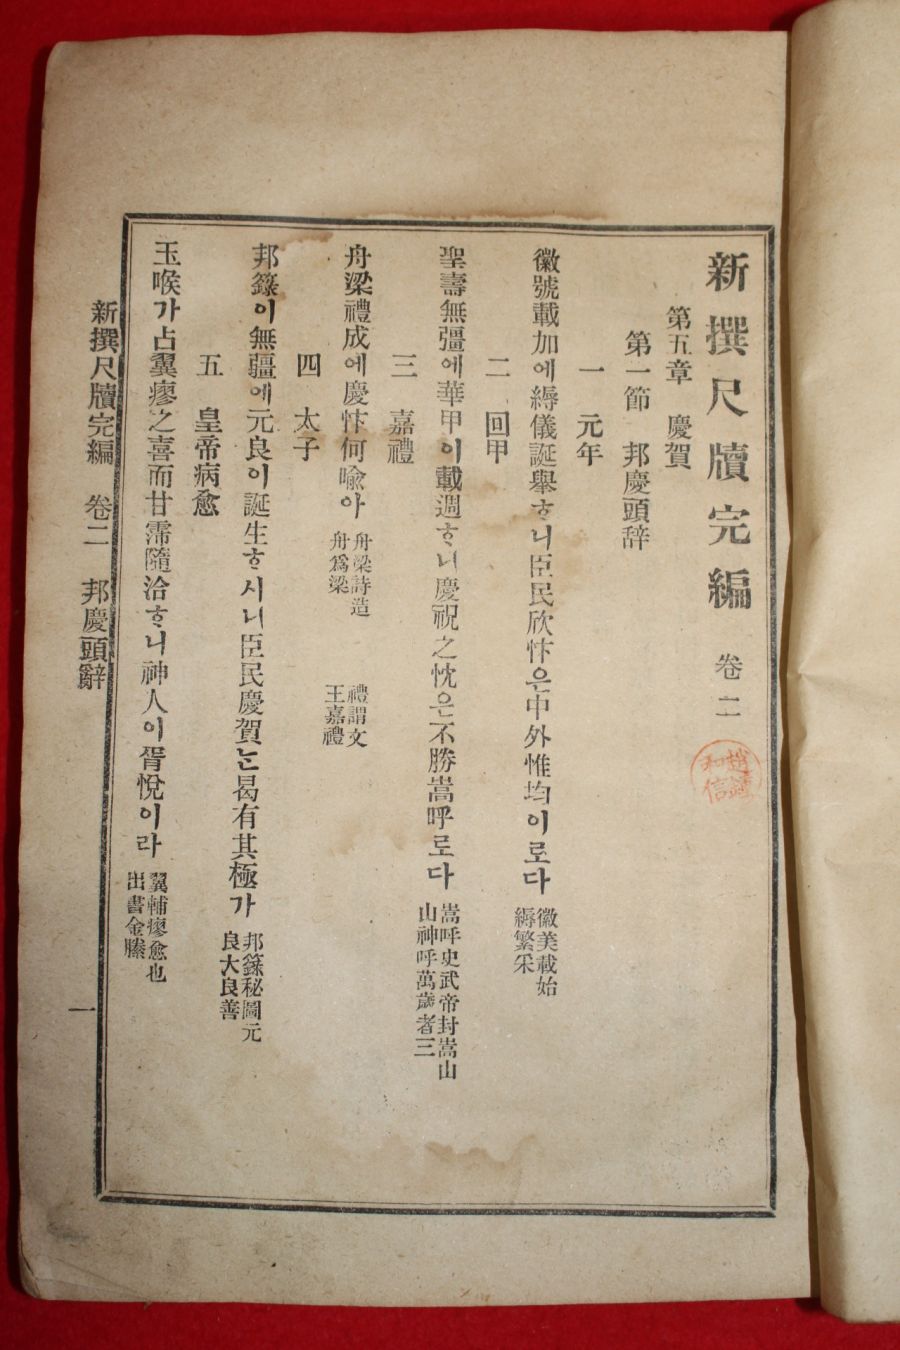 新撰尺牘完編 卷二
趙鍾和信
第五章 慶賀
第一節 邦慶頭辞
一 元年
徽號載加에縟儀誕舉ᄒᆞ니臣民欣忭은中外惟均이로다 徽美載始
縟繁采
二 回甲
聖壽無彊에華甲이載週ᄒᆞ니慶祝之忱은不勝嵩呼로다 嵩呼史武帝封嵩山
山神呼萬歲者三
三 嘉禮
舟梁禮成에慶忭何喩아 舟梁詩造
舟爲梁
禮謂文
王嘉禮
四 太子
邦籙이無疆에元良이誕生ᄒᆞ시니臣民慶賀는曷有其極가 邦籙秘圖元
良大良善
五 皇帝病愈
玉喉가占翼瘳之喜而甘霈隨洽ᄒᆞ니神人이胥悅이라 翼輔瘳愈也
出書金縢
新撰尺牘完編 卷二 邦慶頭辭 一